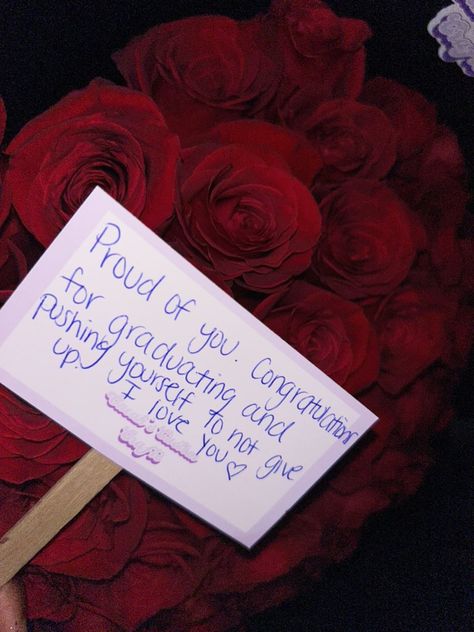 Proud of you. Congratulations
for graduating and
pushing yourself to not give
up. I love you ♡